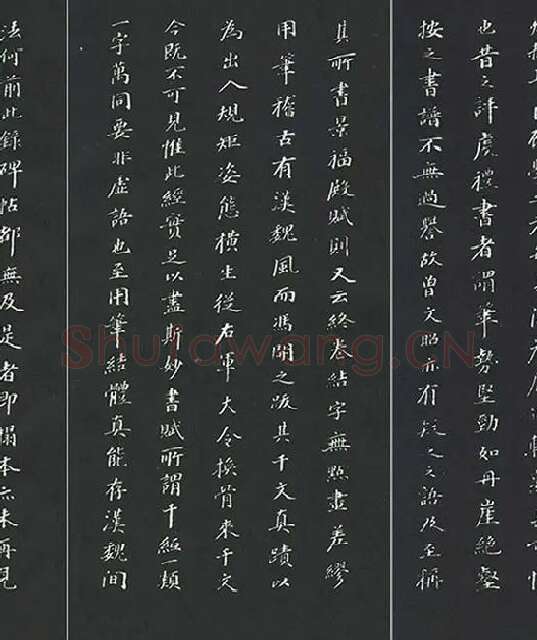 也昔之評虞禮書者謂筆勢堅勁如丹崖絕壑
按之書譜不無過譽故曾文昭亦有疑之之語及至稱
其所書景福殿賦則又云終卷結字無點畫差繆
用筆稽古有漢魏風而馮開之跋其千文真蹟以
為出入規矩姿態橫生從右軍大令換骨來千文
今既不可見惟此經實足以盡斯妙書賦所謂千經一類
一字萬同要非虛語也至用筆結體真能存漢魏間
法何前此錄碑帖都無及是者即搨本亦未再見
Shufawang.CN